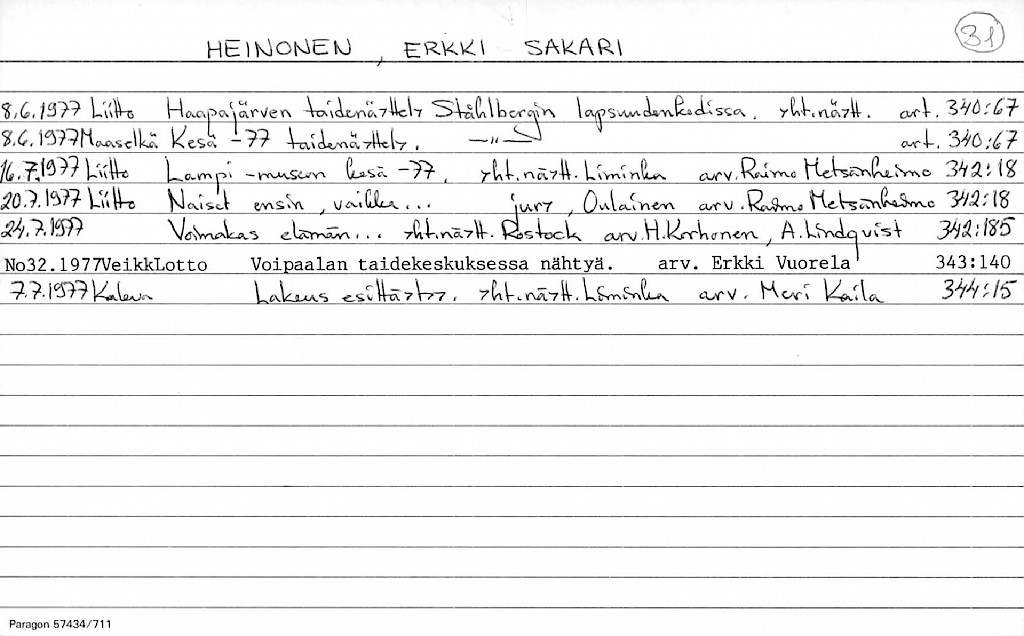 HEINONEN, ERKKI SAKARI 31
8.6.1977 Liitto Haapajärven taidenäyttely Ståhlbergin lapsuudenkodissa. yht.näytt. art. 340:67
8.6.1977 Maaselkä Kesä -77 taidenäyttely. —"— art. 340:67
16.7.1977 Liitto Lampi-museon kesä -77. yht.näytt. Liminka arv. Raimo Metsänheimo 342:18
20.7.1977 Liitto Naiset ensin, vaikka... jury, Oulainen arv. Raimo Metsänheimo 342:18
24.7.1977 Voimakas elämän... yht.näytt. Rostock arv. H. Korhonen, A. Lindqvist 342:185
No32.1977VeikkLotto Voipaalan taidekeskuksessa nähtyä. arv. Erkki Vuorela 343:140
7.7.1977 Kaleva Lakeus esittäytyy. yht.näytt. Liminka arv. Meri Kaila 344:15
Paragon 57434/711